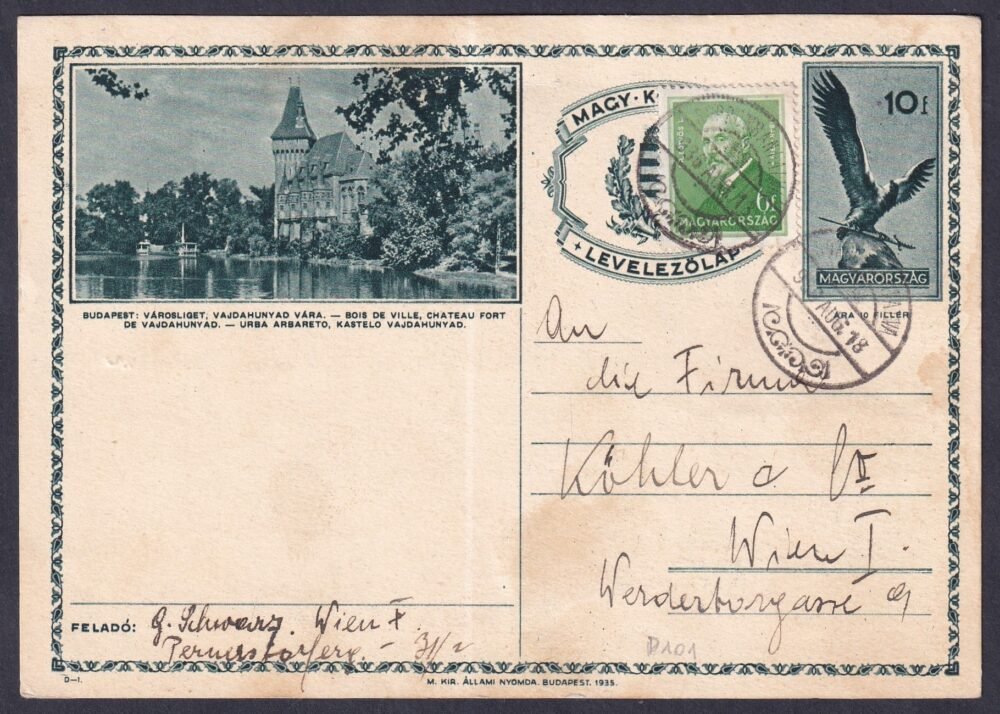 BUDAPEST: VÁROSLIGET, VAJDAHUNYAD VÁRA. — BOIS DE VILLE, CHATEAU FORT
DE VAJDAHUNYAD. — URBA ARBARETO, KASTELO VAJDAHUNYAD.
MAGY. K
LEVELEZŐLAP
6f
MAGYARORSZÁG
10 f
MAGYARORSZÁG
ÁRA 10 FILLÉR
AUG. 18
An
die Firma
Köhler &
Wien I.
Werdertorgasse 9
FELADÓ: G. Schwarz. Wien X
31/2
P101
D—1.
M. KIR. ÁLLAMI NYOMDA. BUDAPEST. 1935.